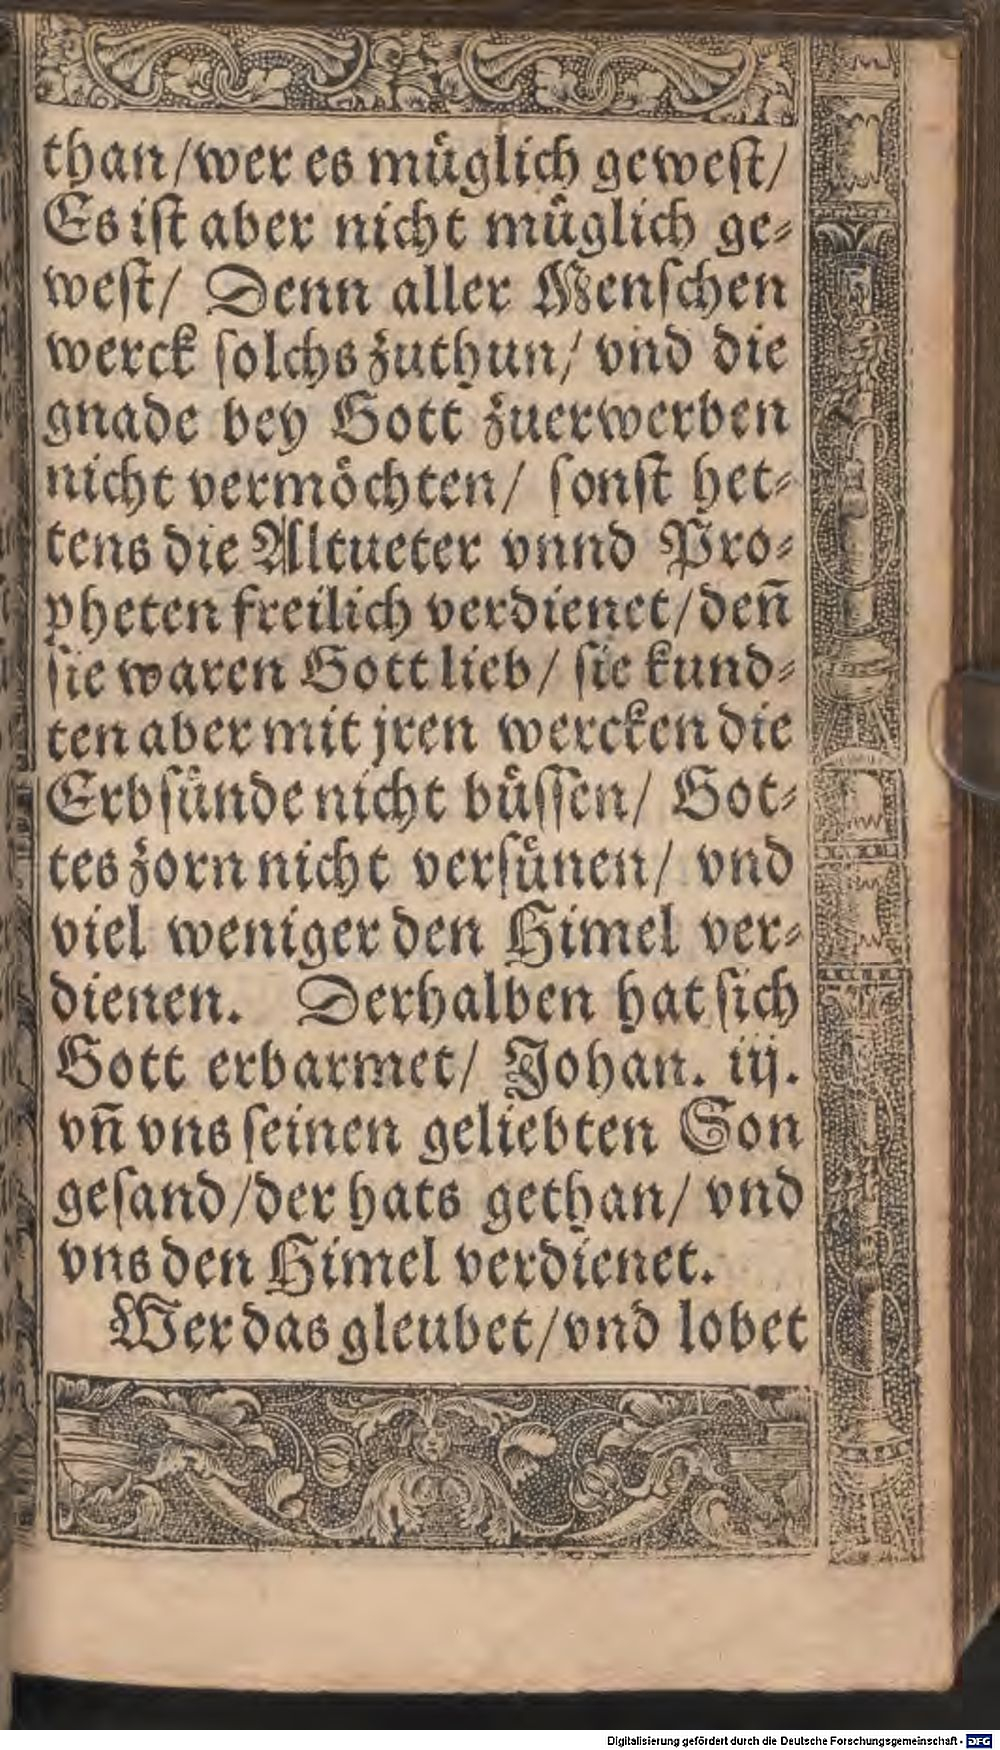 than/wer es müglich gewest/
Es ist aber nicht müglich ge⸗
west/ Denn aller Menschen
werck solchs zuthun/ vnd die
gnade bey Gott zuerwerben
nicht vermöchten/ sonst het⸗
tens die Altueter vnnd Pro⸗
pheten freilich verdienet/deñ
sie waren Gott lieb/ sie kund⸗
ten aber mit jren wercken die
Erbsünde nicht büssen/ Got⸗
tes zorn nicht versünen/ vnd
viel weniger den Himel ver⸗
dienen. Derhalben hat sich
Gott erbarmet/ Johan. iij.
vñ vns seinen geliebten Son
gesand/der hats gethan/ vnd
vns den Himel verdienet.
Wer das gleubet/vnd lobet
Digitalisierung gefördert durch die Deutsche Forschungsgemeinschaft - DFG